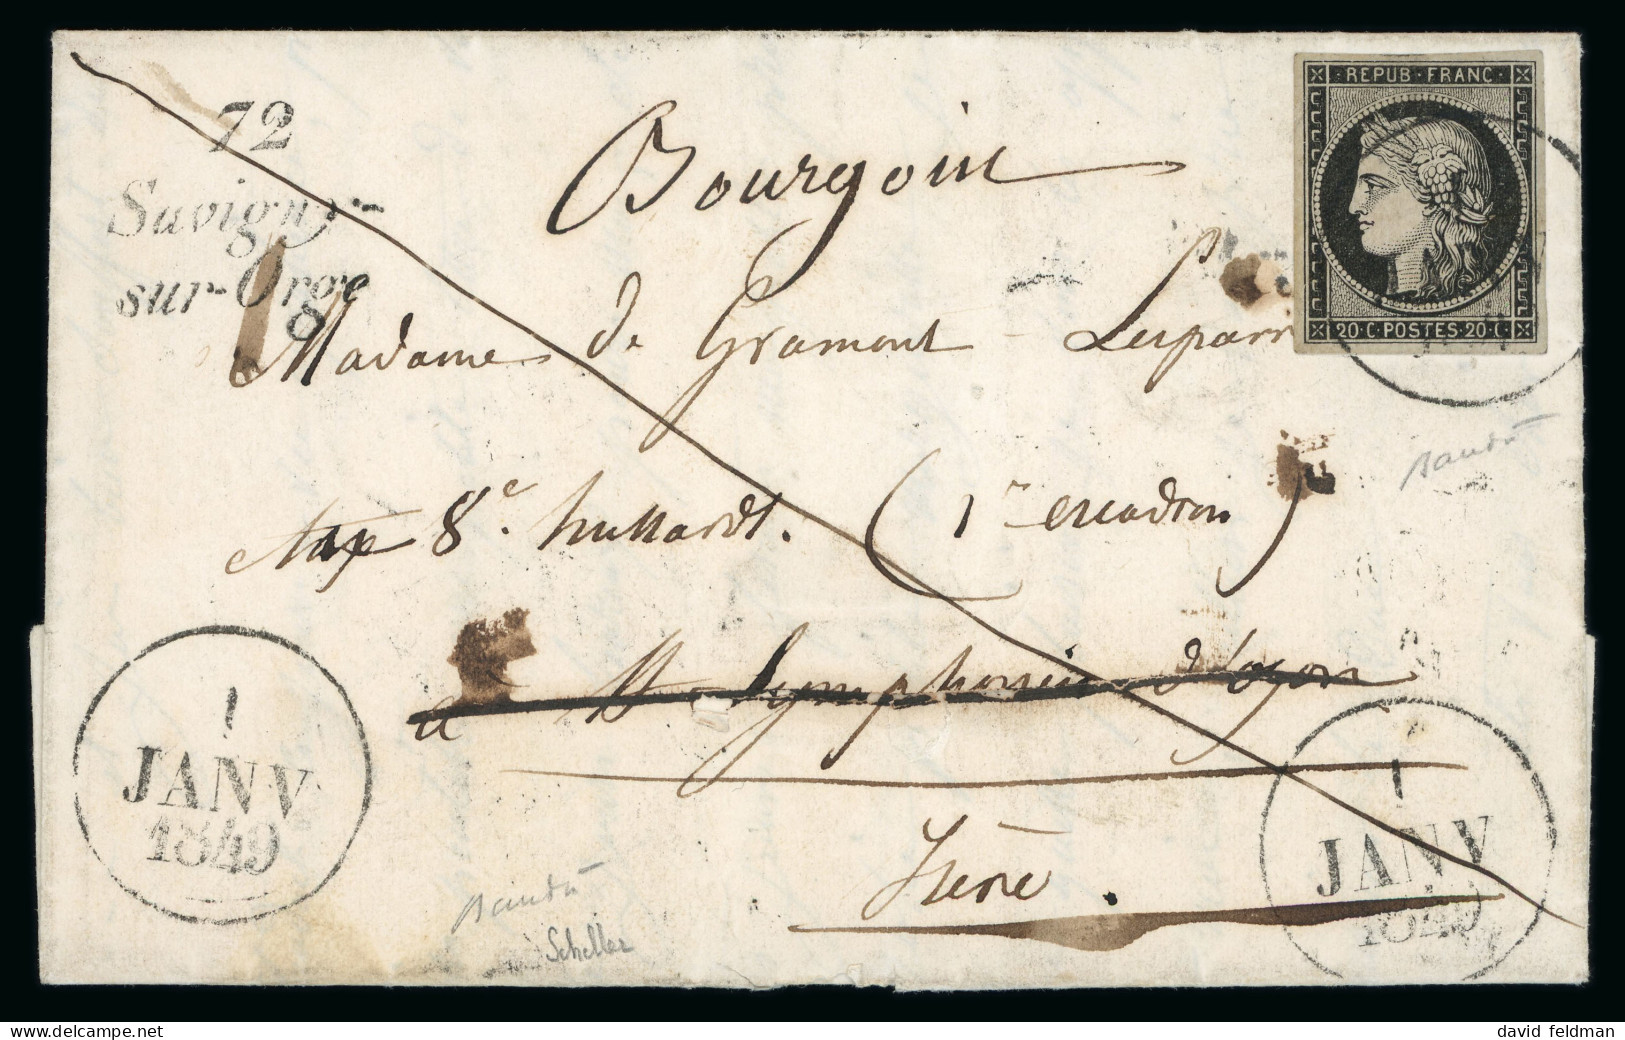 REPUB · FRANC ·
72
Savigny-
sur-Orge
Bourgoin
20 · C · POSTES · 20 · C ·
Madame de Gramont Lesparre
8e hussards. (1er escadron)
à St Symphorien d'Ozon
Isère.
1
JANV
1849
1
JANV
1849
Baudot
Baudot
Scheller
david feldman